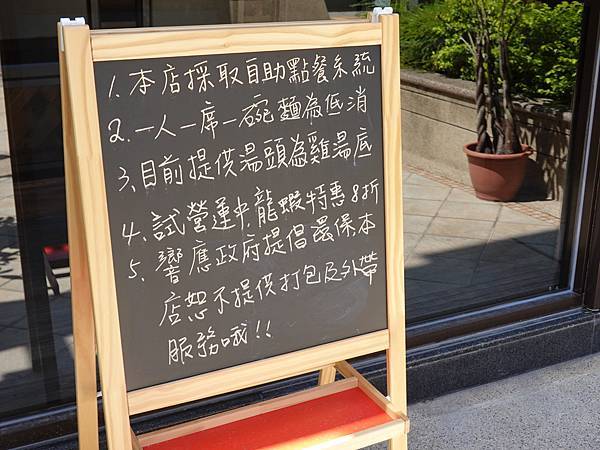 1. 本店採取自助點餐系統
2. 一人一席一碗麵為低消
3. 目前提供湯頭為雞湯底
4. 試營運中, 龍蝦特惠8折
5. 響應政府提倡環保本
店恕不提供打包及外帶
服務哦!!